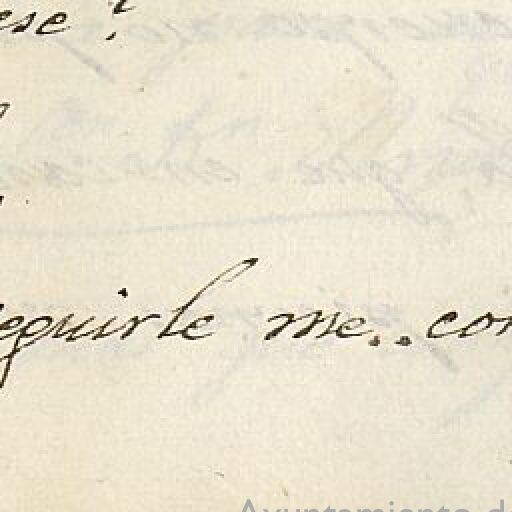 ese?
eguirle me.. con
Ayuntamiento d